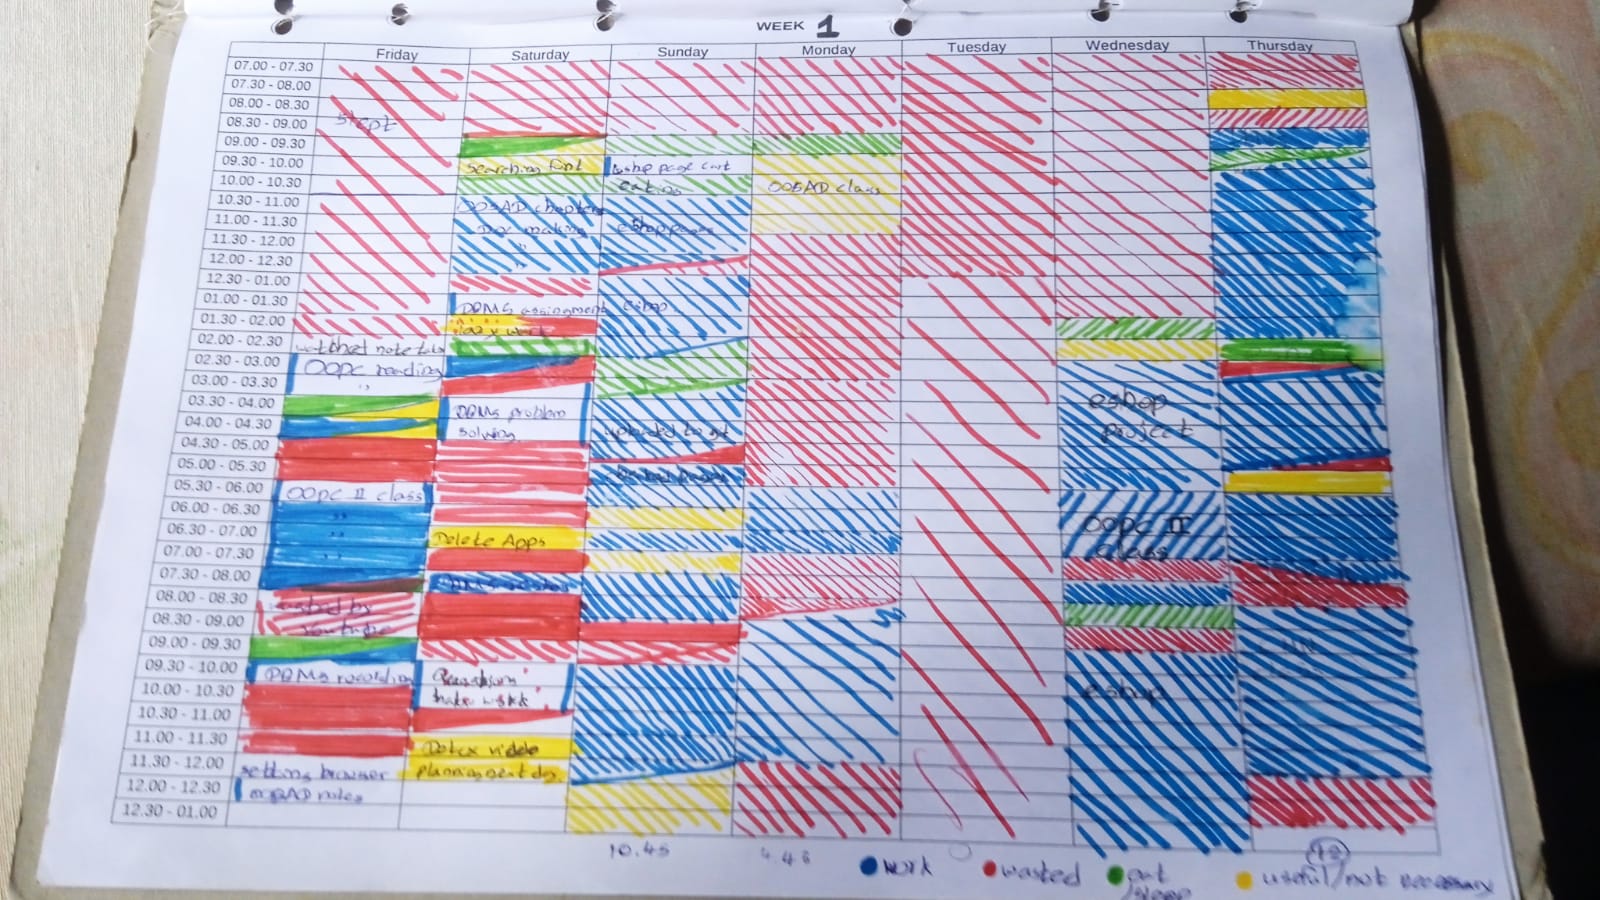 WEEK 1
Friday Saturday Sunday Monday Tuesday Wednesday Thursday
07.00 - 07.30
07.30 - 08.00
08.00 - 08.30
08.30 - 09.00 slept
09.00 - 09.30
09.30 - 10.00 searching font eshop page cart
10.00 - 10.30 eating OOSAD class
10.30 - 11.00 OOSAD chapters
11.00 - 11.30 Doc making eshop pages
11.30 - 12.00 "
12.00 - 12.30 "
12.30 - 01.00
01.00 - 01.30 DBMS assingment Eshop
01.30 - 02.00 work
02.00 - 02.30 watched note
02.30 - 03.00 OOPC reading
03.00 - 03.30 "
03.30 - 04.00 DBMS problem eshop
04.00 - 04.30 solving uploaded to git project
04.30 - 05.00
05.00 - 05.30
05.30 - 06.00 OOPC II class
06.00 - 06.30 " OOPC II
06.30 - 07.00 " Delete Apps class
07.00 - 07.30 "
07.30 - 08.00
08.00 - 08.30 by
08.30 - 09.00
09.00 - 09.30 NN
09.30 - 10.00 DBMS recording
10.00 - 10.30 eshop
10.30 - 11.00
11.00 - 11.30 video
11.30 - 12.00 setting browser planning next day
12.00 - 12.30 OOSAD notes
12.30 - 01.00
10.45 4.46 12
work wasted eat useful/not necessary
/sleep